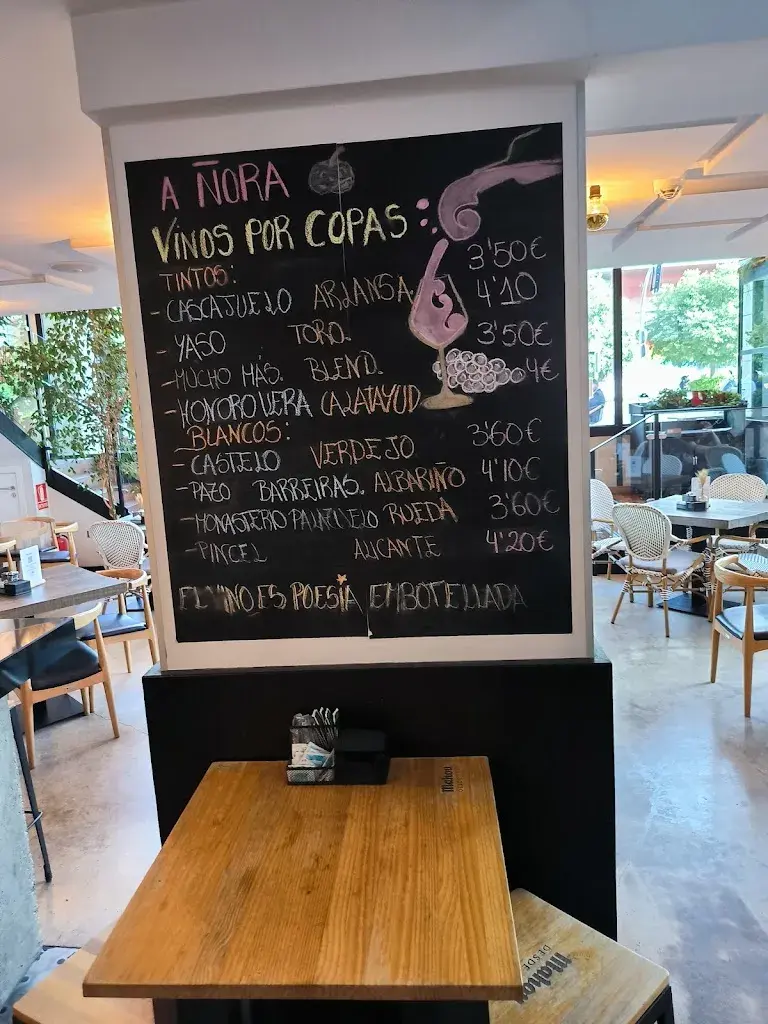 A ÑORA
VINOS POR COPAS
TINTOS:
- CASCAJUELO ARLANSA 3'50€
- YASO TORO. 4'10
- MUCHO MÁS. BLEND. 3'50€
- HONORO VERA CALATAYUD 4€
BLANCOS:
- CASTELO VERDEJO 3'60€
- PAZO BARREIRAS. ALBARIÑO 4'10€
- MONASTERIO PALAZUELO RUEDA 3'60€
- PINCEL ALICANTE 4'20€
EL VINO ES POESIA EMBOTELLADA
Mahou
Mahou
DESDE